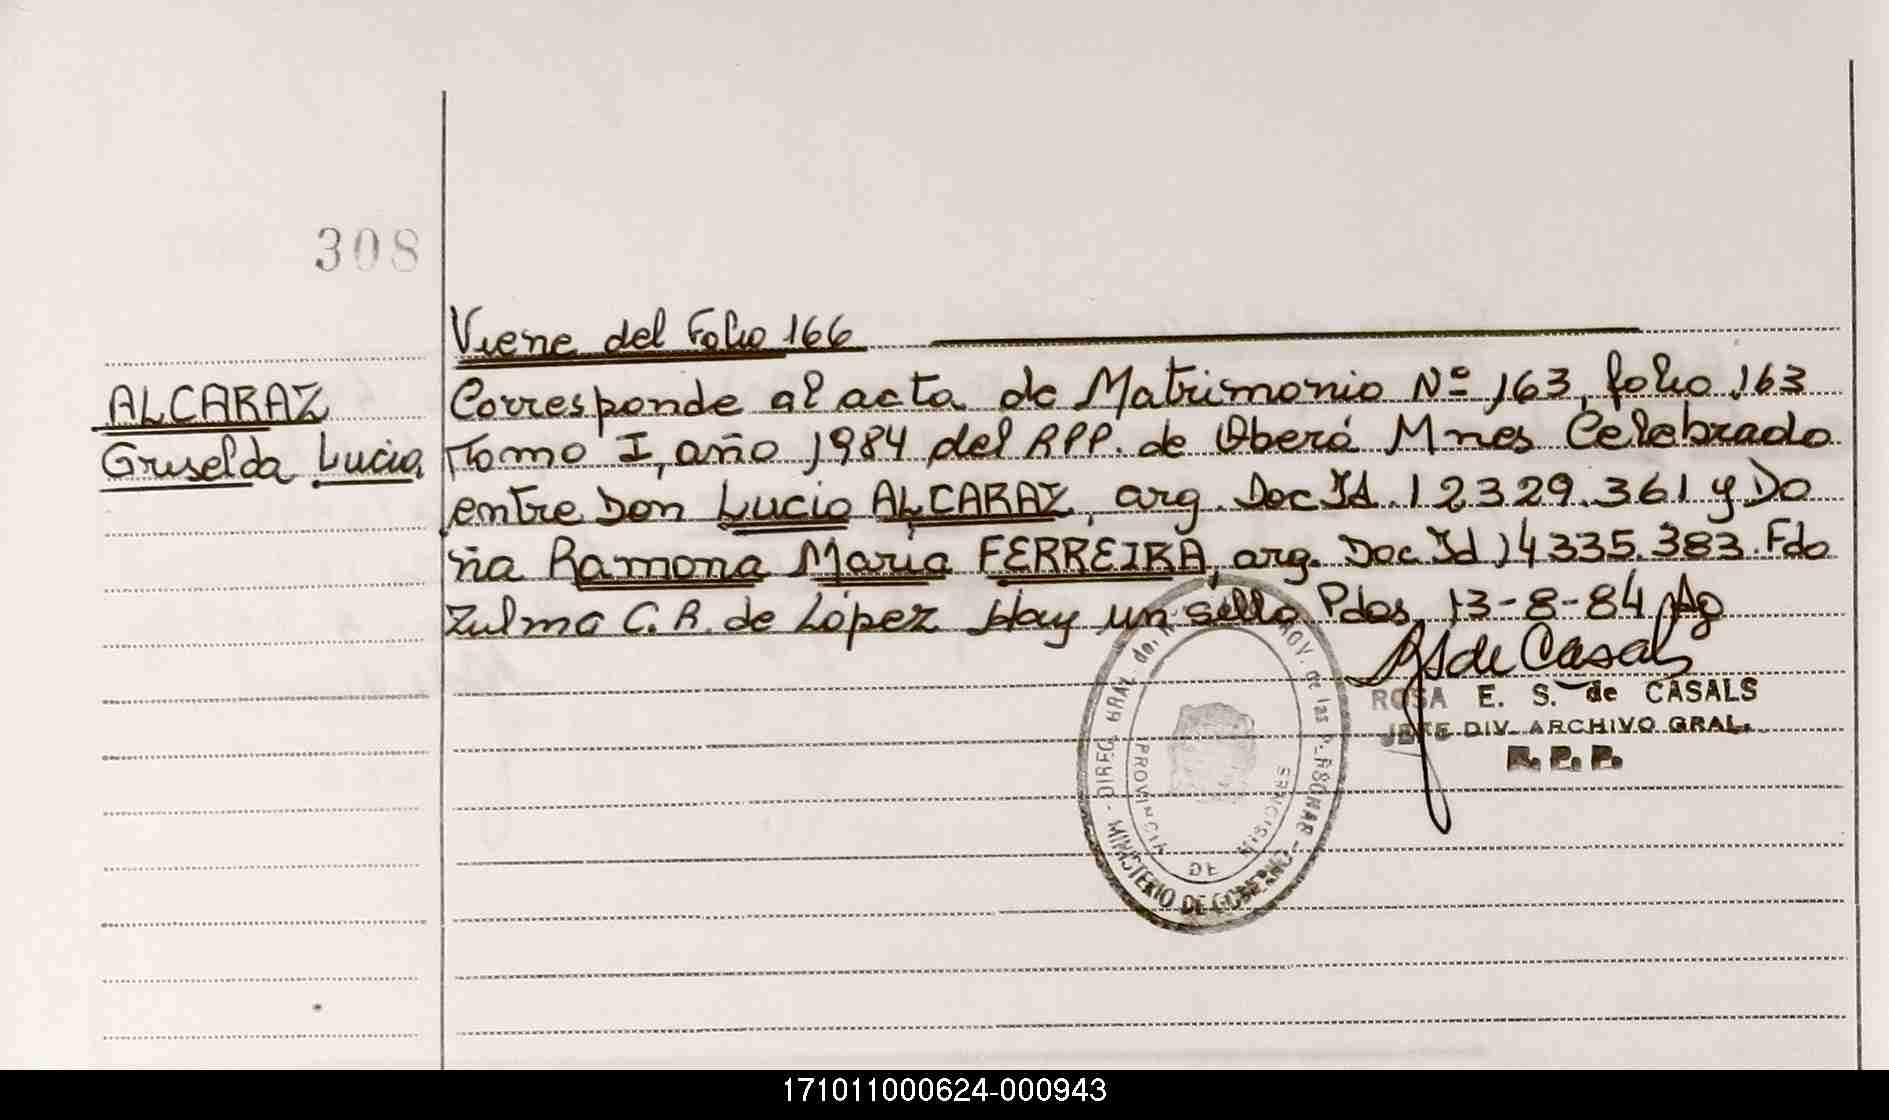 308
Viene del Folio 166
ALCARAZ
Griselda Lucia
Corresponde al acta de Matrimonio Nº 163, folio 163
Tomo I, año 1984 del RPP. de Oberá Mnes Celebrado
entre Don Lucio ALCARAZ, arg. Doc Id. 12329.361 y Do
ña Ramona Maria FERREIRA, arg. Doc Id 14335.383. Fdo
Zulma C. R. de López Hay un sello Pdas, 13-8-84
de Casals
ROSA E. S. de CASALS
JEFE DIV. ARCHIVO GRAL.
R. P. P.
DIREC. GRAL. del PROV. de las PERSONAS
MINISTERIO DE GOBIERNO
PROVINCIA DE MISIONES
171011000624-000943